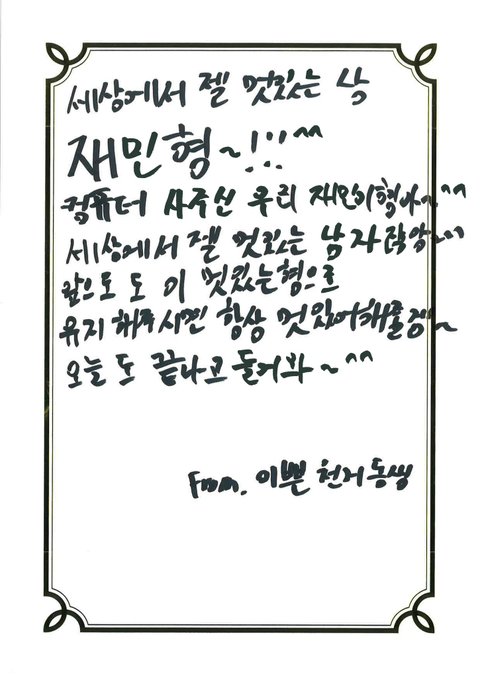 세상에서 젤 멋있는 남
재민형~!!^^
컴퓨터 사주신 우리 재민이형아~^^
세상에서 젤 멋있는 남자랑
앞으로도 이 멋있는형으로
유지해주시면 항상 멋있어해줄
오늘도 끝나고 놀거봐~^^
From. 이쁜 동생